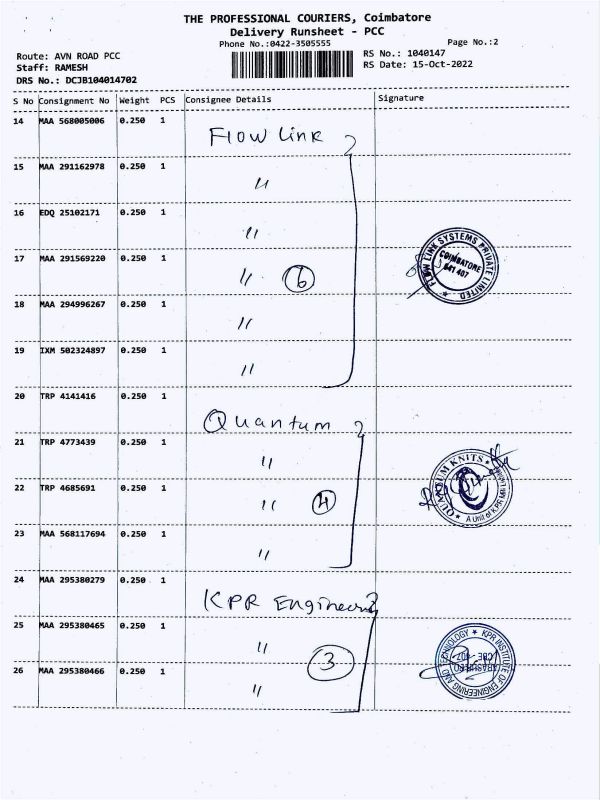 THE PROFESSIONAL COURIERS, Coimbatore
Delivery Runsheet - PCC
Phone No.:0422-3505555
Page No.:2
Route: AVN ROAD PCC
RS No.: 1040147
Staff: RAMESH
RS Date: 15-Oct-2022
DRS No.: DCJB104014702
S No Consignment No Weight PCS Consignee Details Signature
14 MAA 568005006 0.250 1 Flow Link
15 MAA 291162978 0.250 1 "
16 EDQ 25102171 0.250 1 "
17 MAA 291569220 0.250 1 " 6
FLOW LINK SYSTEMS PRIVATE LIMITED
COIMBATORE
641 407
18 MAA 294996267 0.250 1 "
19 IXM 502324897 0.250 1 "
20 TRP 4141416 0.250 1 Quantum
21 TRP 4773439 0.250 1 "
22 TRP 4685691 0.250 1 " 4
QUANTUM KNITS
23 MAA 568117694 0.250 1 "
24 MAA 295380279 0.250 1 KPR Engineer
25 MAA 295380465 0.250 1 " 3
KPR INSTITUTE OF ENGINEERING AND TECHNOLOGY
26 MAA 295380466 0.250 1 "